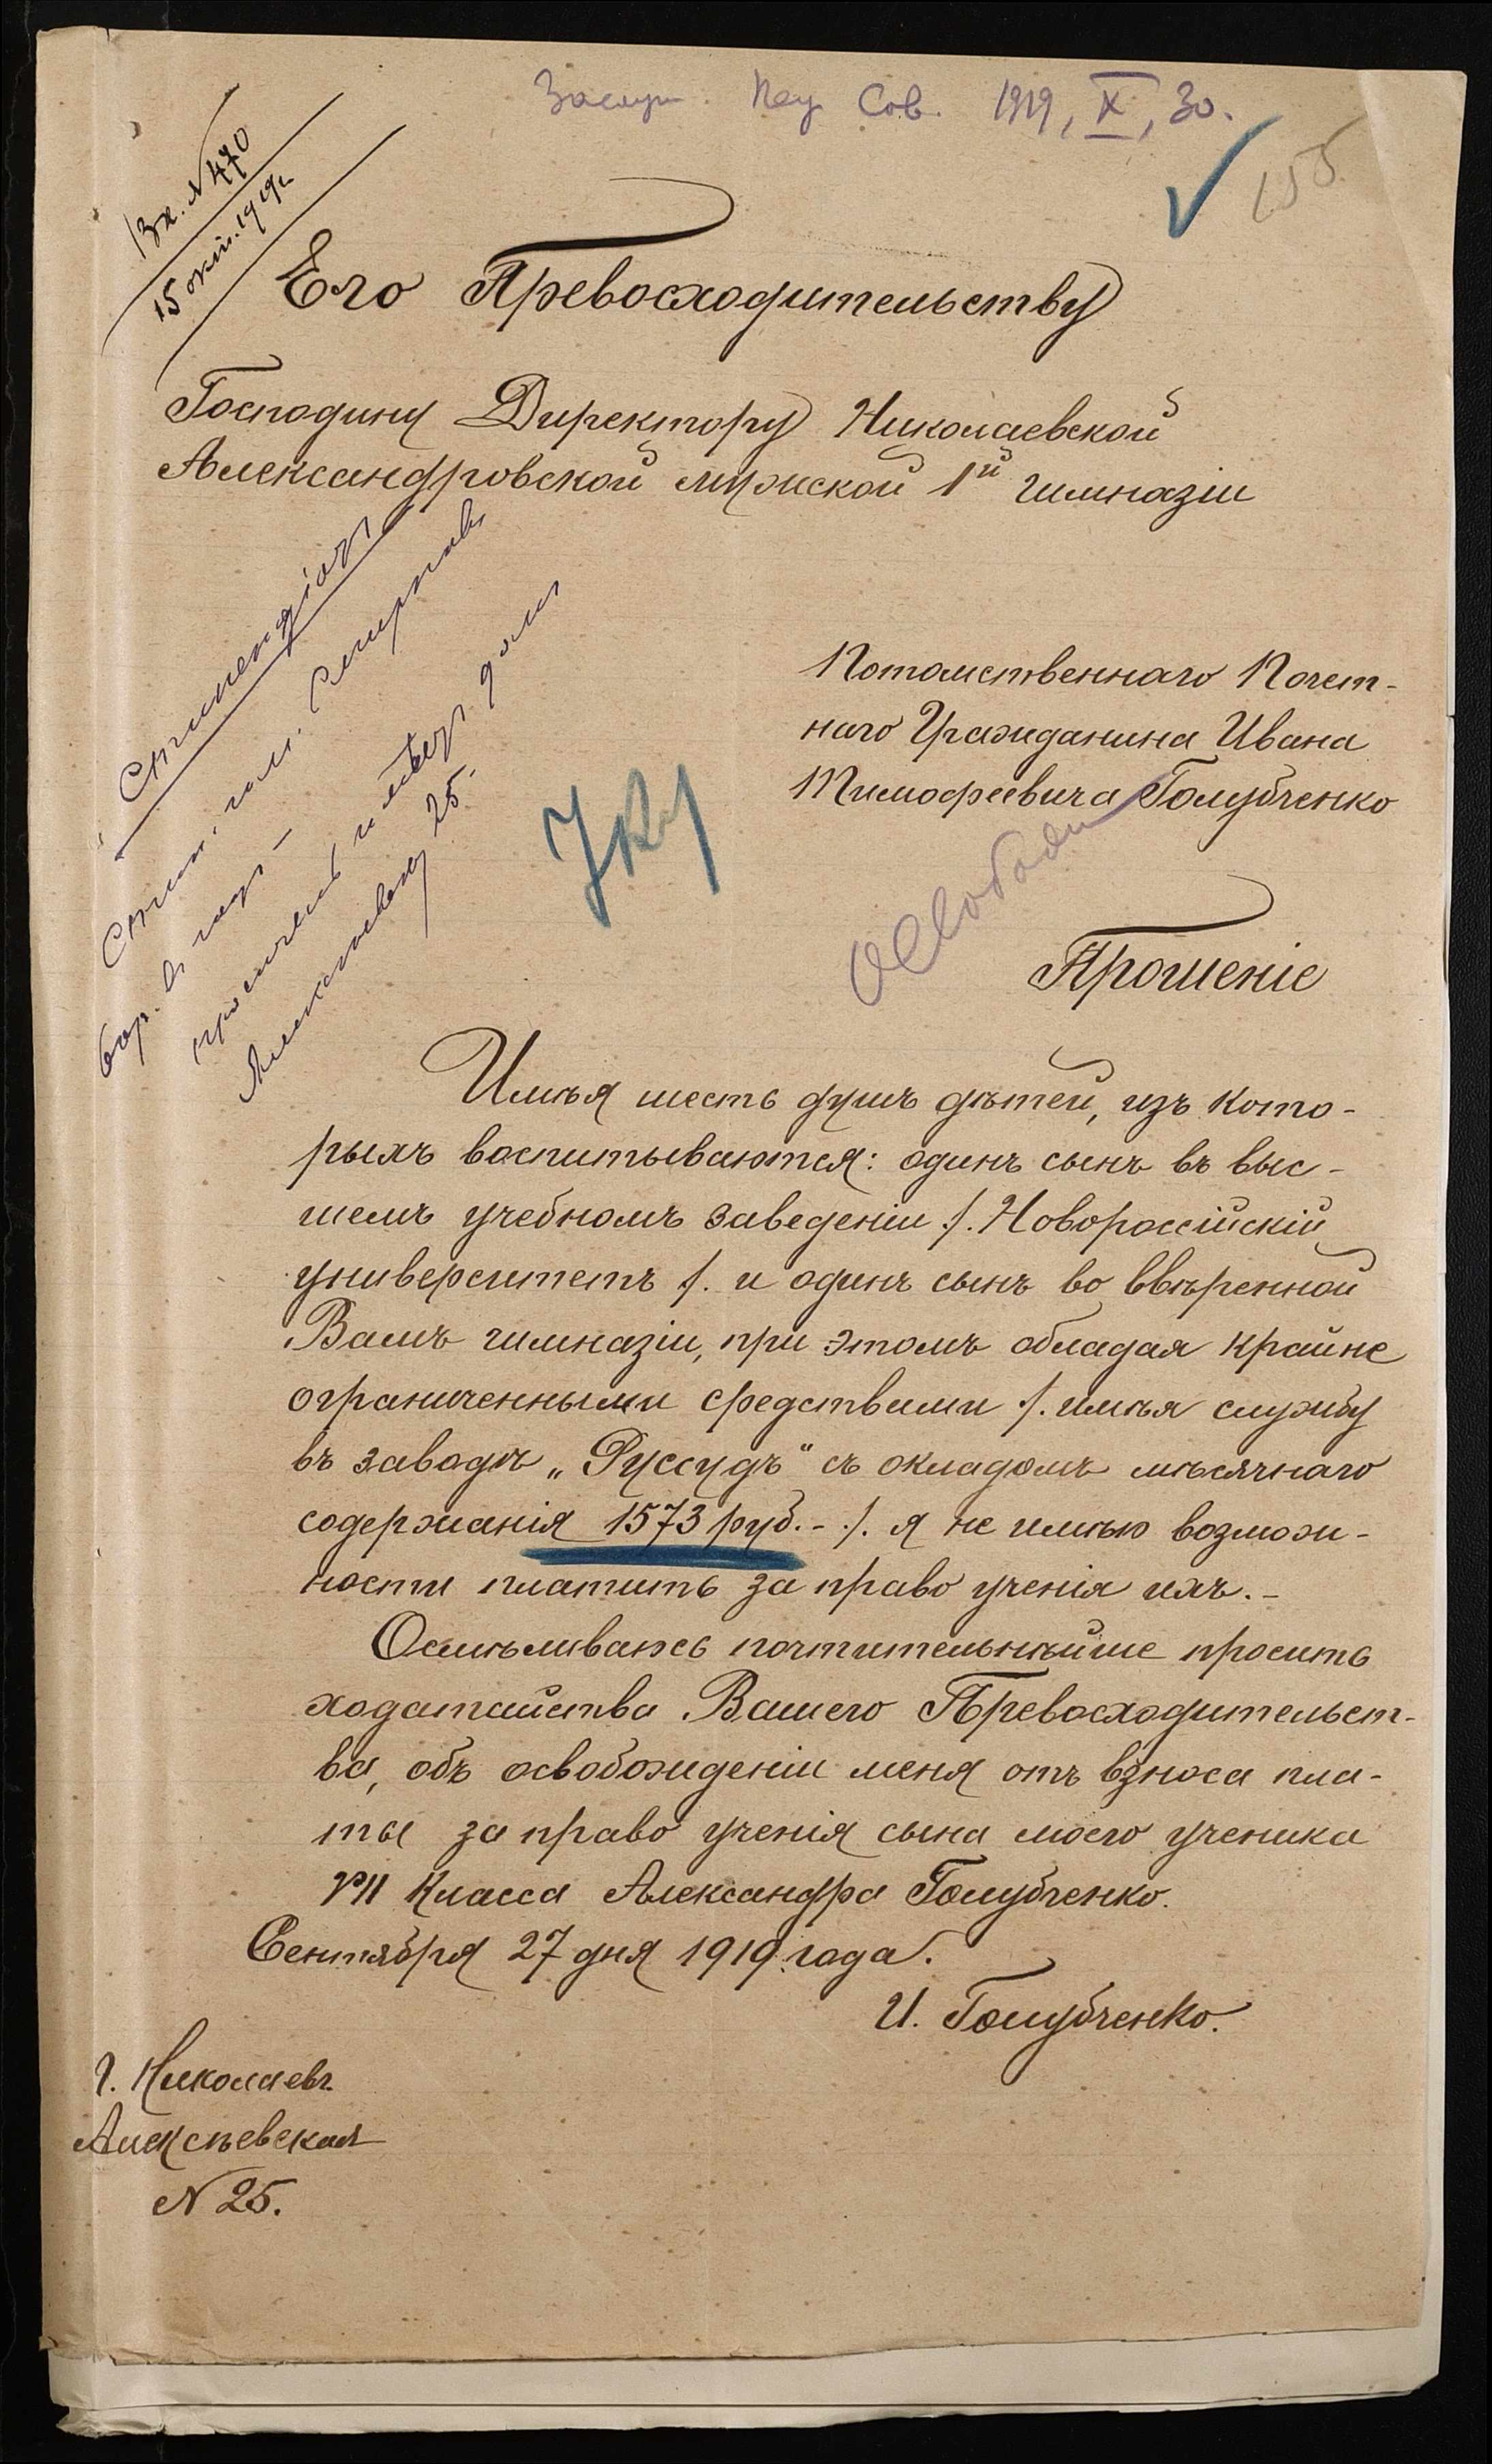 Заслуш. Пед Сов. 1919, X, 30.
Вх. № 470
15 окт. 1919 г.
155
Его Превосходительству
Господину Директору Николаевской
Александровской мужской 1й гимназіи
Стипендіатъ
Стип. Смирнова
въ
просителъ имѣетъ домъ
Алексѣевск 25.
Потомственнаго Почет-
наго Гражданина Ивана
Тимофеевича Голубченко
VII
освобод
Прошеніе
Имѣя шесть душъ дѣтей, изъ кото-
рыхъ воспитываются: одинъ сынъ въ выс-
шемъ учебномъ заведеніи /. Новороссійскій
университетъ /. и одинъ сынъ во ввѣренной
Вамъ гимназіи, при этомъ обладая крайне
ограниченными средствами /. имѣя службу
въ заводѣ „Руссудъ" съ окладомъ мѣсячнаго
содержанія 1573 руб. - ./. я не имѣю возмож-
ности платить за право ученія ихъ. -
Осмѣливаюсь почтительнѣйше просить
ходатайства Вашего Превосходительст-
ва, объ освобожденіи меня отъ взноса пла-
ты за право ученія сына моего ученика
VII класса Александра Голубченко.
Сентября 27 дня 1919 года.
И. Голубченко.
г. Николаевъ
Алексѣевская
№ 25.